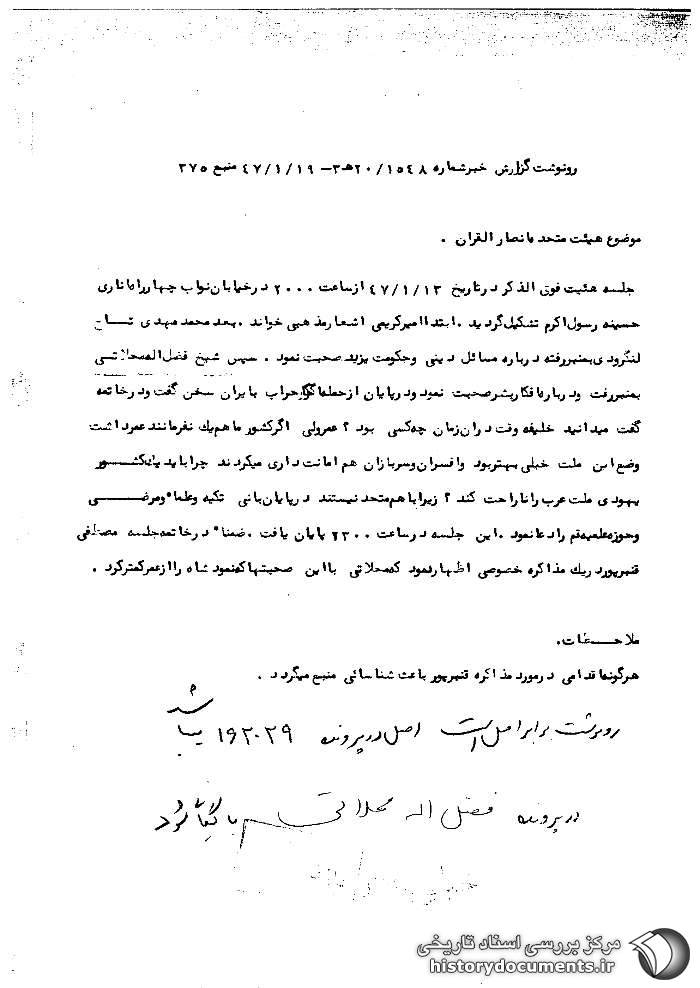 رونوشت گزارش خبر شماره ۲۰/۱۵۴۸ هـ ۳ – ۴۷/۱/۱۹ منبع ۳۷۵
موضوع هیئت متحد ما نصار القران .
جلسه هیئت فوق الذکر در تاریخ ۴۷/۱/۱۳ از ساعت ۲۰۰۰ در خیابان نواب چهارراه اناری
حسینه رسول اکرم تشکیل گردید . ابتدا امیر کریمی اشعار مذهبی خواند . بعد محمد مهدی تـاج
لنگرودی بمنبر رفته در باره مسائل دینی وحکومت یزید صحبت نمود . سپس شیخ فضل اله محلاتی
بمنبر رفت ودرباره افکار بشر صحبت نمود ودرپایان از حمله اعراب بایران سخن گفت ودر خاتمه
گفت میدانید خلیفه وقت دران زمان چه کسی بود ؟ عمر ولی اگر کشور ما هم یک نفر مانند عمر داشت
وضع این ملت خیلی بهتر بود وافسران وسربازان هم امانت داری میکردند چرا باید یک کشـور
یهودی ملت عرب را ناراحت کند ؟ زیرا باهم متحد نیستند درپایان بانی تکیه وعلما و مرضـی
وحوزه علمیه قم را دعا نمود . این جلسه در ساعت ۲۳۰۰ پایان یافت . ضمنا" در خاتمه جلسه مصطفی
قنبرپور در یک مذاکره خصوصی اظهار نمود که محلاتی با این صحبتها که نمود شاه را از عمر کمتر کرد .
ملاحـظات .
هرگونه اقدامی در مورد مذاکره قنبرپور باعث شناسائی منبع میگردد .
رونوشت برابر اصل است اصل در پرونده ۱۹۲۰۲۹ میباشد
در پرونده فضل اله محلاتی بایگانی شود
مرکز بررسی اسناد تاریخی
historydocuments.ir